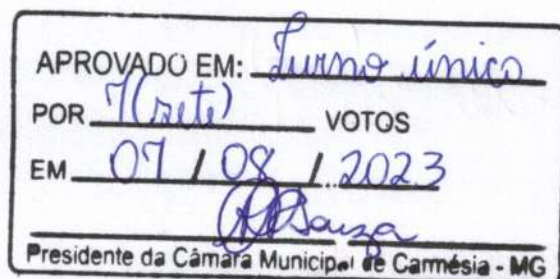 APROVADO EM: Turno único
POR 7 (sete) VOTOS
EM 07 / 08 / 2023
Souza
Presidente da Câmara Municipal de Carmésia - MG